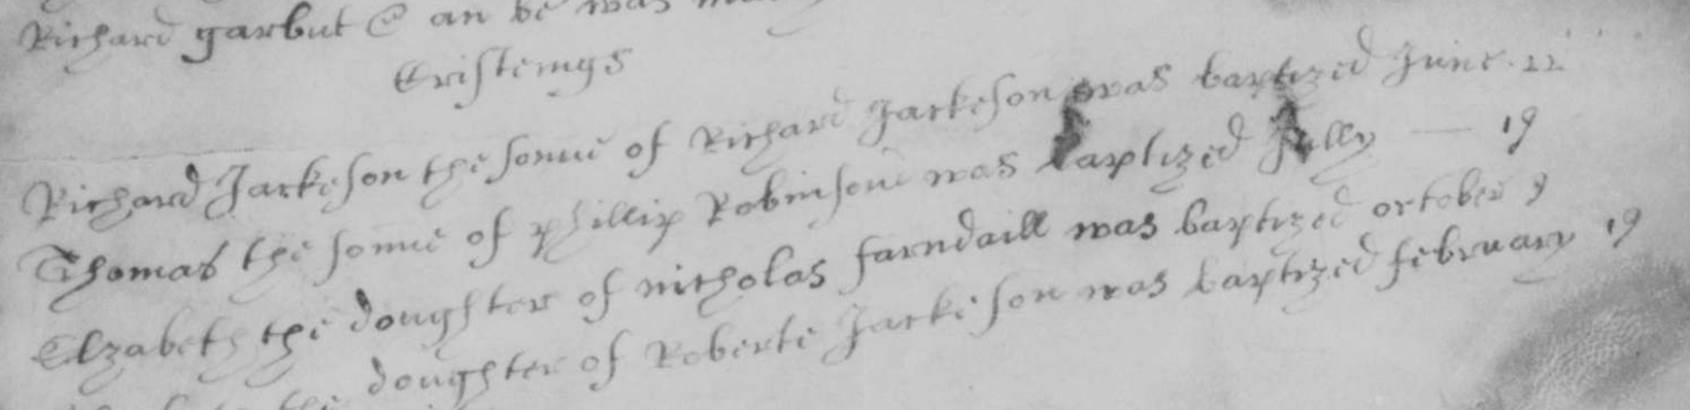 Richard garbut & an be was
Cristemgs
Richard Jackeson the sonne of Richard Jackeson was baptized June. 22
Thomas the sonne of phillip Robinson was baptized Jully — 19
Elzabeth the doughter of nicholas farndaill was baptized october 9
the doughter of Roberte Jackeson was baptized february 19